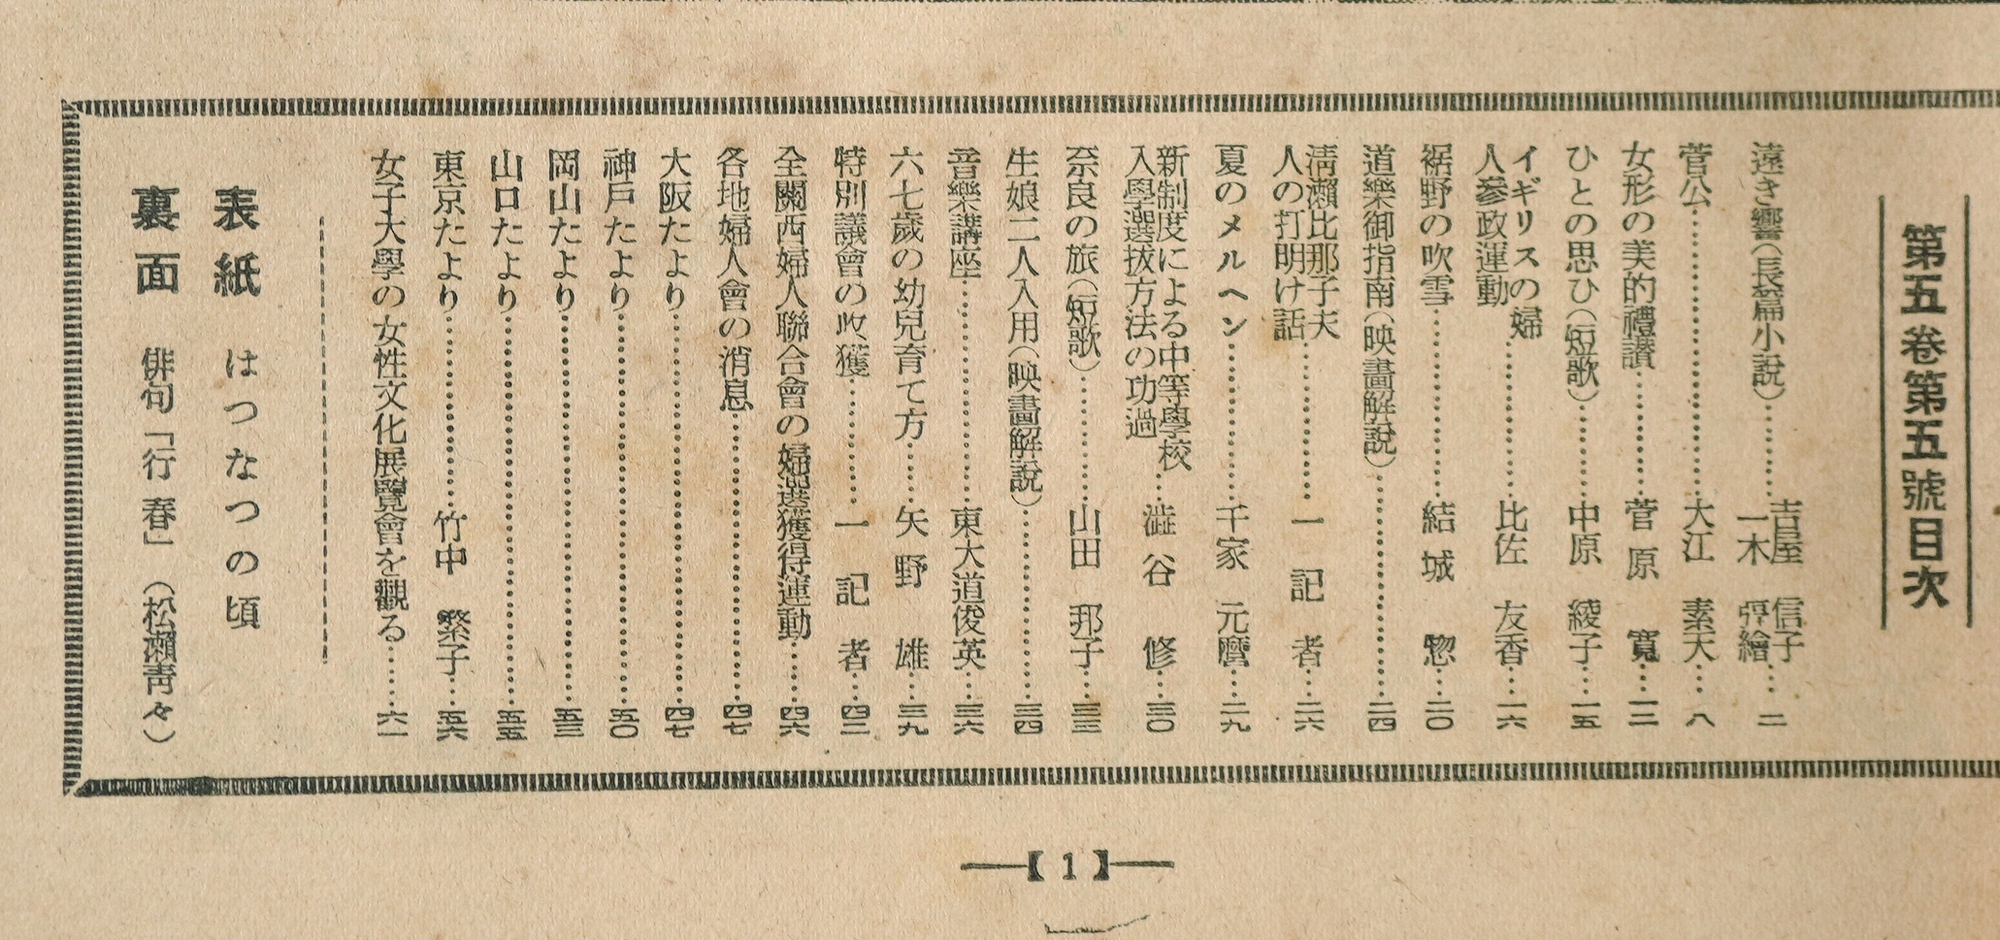 第五卷第五號目次
遠き響(長篇小說)………吉屋 信子
一木 弴繪…二
菅公………大江 素天…八
女形の美的禮讃………菅原 寬…一二
ひとの思ひ(短歌)………中原 綾子…一五
イギリスの婦
人參政運動………比佐 友香…一六
裾野の吹雪………結城 惣…二〇
道樂御指南(映畫解說)………二四
淸瀨比那子夫
人の打明け話………一記者…二六
夏のメルヘン………千家 元麿…二九
新制度による中等學校
入學選拔方法の功過…澁谷 修…三〇
奈良の旅(短歌)………山田 邦子…三三
生娘二人入用(映畫解說)………三四
音樂講座………東大道俊英…三六
六七歲の幼兒育て方……矢野 雄…三九
特別議會の收獲………一記者…四二
全關西婦人聯合會の婦選獲得運動……四六
各地婦人會の消息………四七
大阪たより………四七
神戶たより………五〇
岡山たより………五三
山口たより………五五
東京たより………竹中 繁子…五六
女子大學の女性文化展覽會を觀る……六一
表紙 はつなつの頃
裏面 俳句「行春」(松瀨靑々)
【1】